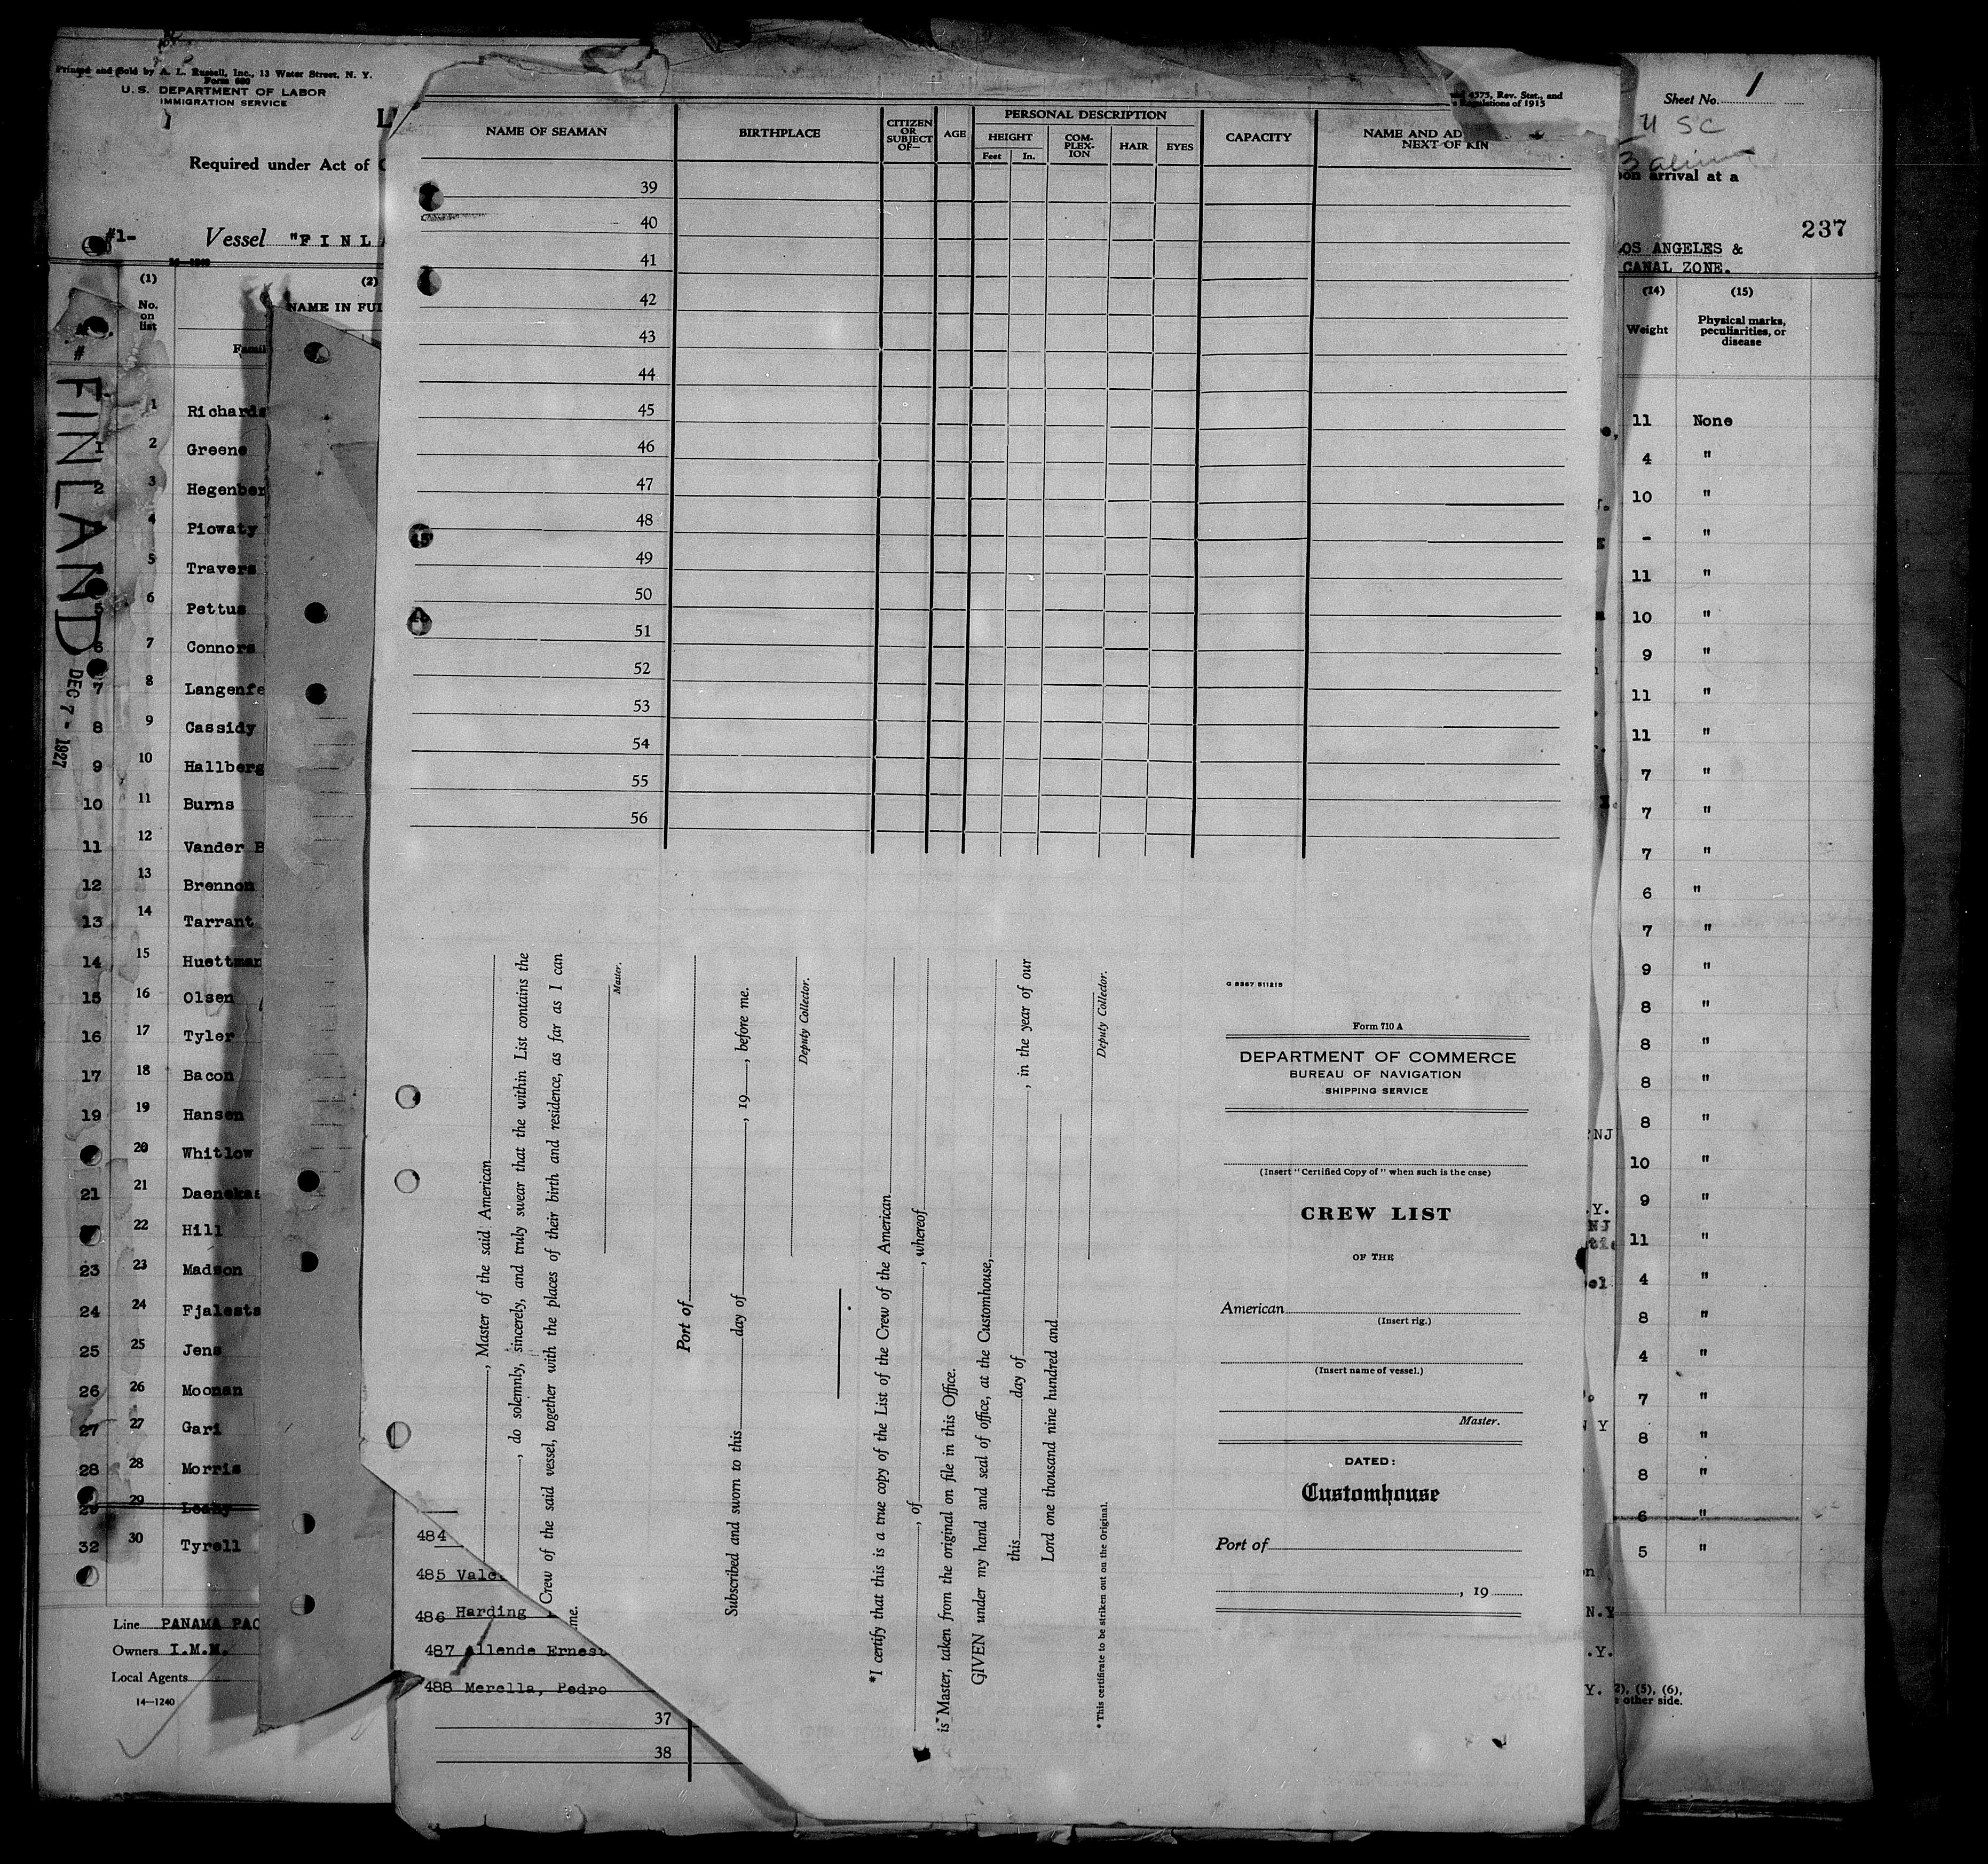 Printed and Sold by A. L. Russell, Inc., 13 Water Street, N. Y.
Form 680
U. S. DEPARTMENT OF LABOR
IMMIGRATION SERVICE
Required under Act of
#1-
Vessel "F I N L A
(1)
(2)
No. on list
NAME IN FUL
Famil
#
FINLAND
DEC 7 - 1927
1 Richards
1 2 Greene
2 3 Hegenber
4 Piowaty
5 Travers
5 6 Pettus
6 7 Connors
7 8 Langenfe
8 9 Cassidy
9 10 Hallberg
10 11 Burns
11 12 Vander B
12 13 Brennon
13 14 Tarrant
14 15 Huettman
15 16 Olsen
16 17 Tyler
17 18 Bacon
19 19 Hansen
20 Whitlow
21 21 Daenekas
22 Hill
23 23 Madson
24 24 Fjalesta
25 25 Jens
26 26 Moonan
27 27 Gari
28 28 Morris
29 29 Leahy
32 30 Tyrell
Line PANAMA PAC
Owners I.M.M.
Local Agents
14—1240
4575, Rev. Stat., and
Regulations of 1915
NAME OF SEAMAN
BIRTHPLACE
CITIZEN OR SUBJECT OF—
AGE
PERSONAL DESCRIPTION
HEIGHT
Feet
In.
COM-PLEX-ION
HAIR
EYES
CAPACITY
NAME AND AD
NEXT OF KIN
39
40
41
42
43
44
45
46
47
48
49
50
51
52
53
54
55
56
, Master of the said American
, do solemnly, sincerely, and truly swear that the within List contains the
Crew of the said vessel, together with the places of their birth and residence, as far as I can
me.
Master.
Port of
Subscribed and sworn to this day of , 19 , before me.
Deputy Collector.
*I certify that this is a true copy of the List of the Crew of the American
, of , whereof
is Master, taken from the original on file in this Office.
GIVEN under my hand and seal of office, at the Customhouse,
this day of , in the year of our
Lord one thousand nine hundred and
Deputy Collector.
*This certificate to be striken out on the Original.
G 8367 511215
Form 710 A
DEPARTMENT OF COMMERCE
BUREAU OF NAVIGATION
SHIPPING SERVICE
(Insert "Certified Copy of" when such is the case)
CREW LIST
OF THE
American
(Insert rig.)
(Insert name of vessel.)
Master.
DATED:
Customhouse
Port of
, 19
484
485 Vale
486 Harding
487 Allende Ernest
488 Merella, Pedro
37
38
Sheet No. 1
4 SC
3 alien
on arrival at a
237
LOS ANGELES &
CANAL ZONE.
(14)
(15)
Weight
Physical marks, peculiarities, or disease
11 None
4 "
10 "
- "
11 "
10 "
9 "
11 "
11 "
7 "
7 "
7 "
6 "
7 "
9 "
8 "
8 "
8 "
8 "
NJ
10 "
9 "
.Y.
NJ
11 "
4 "
8 "
4 "
7 "
8 "
Y
8 "
6 "
5 "
N.Y
.Y.
Y.
2), (5), (6),
other side.